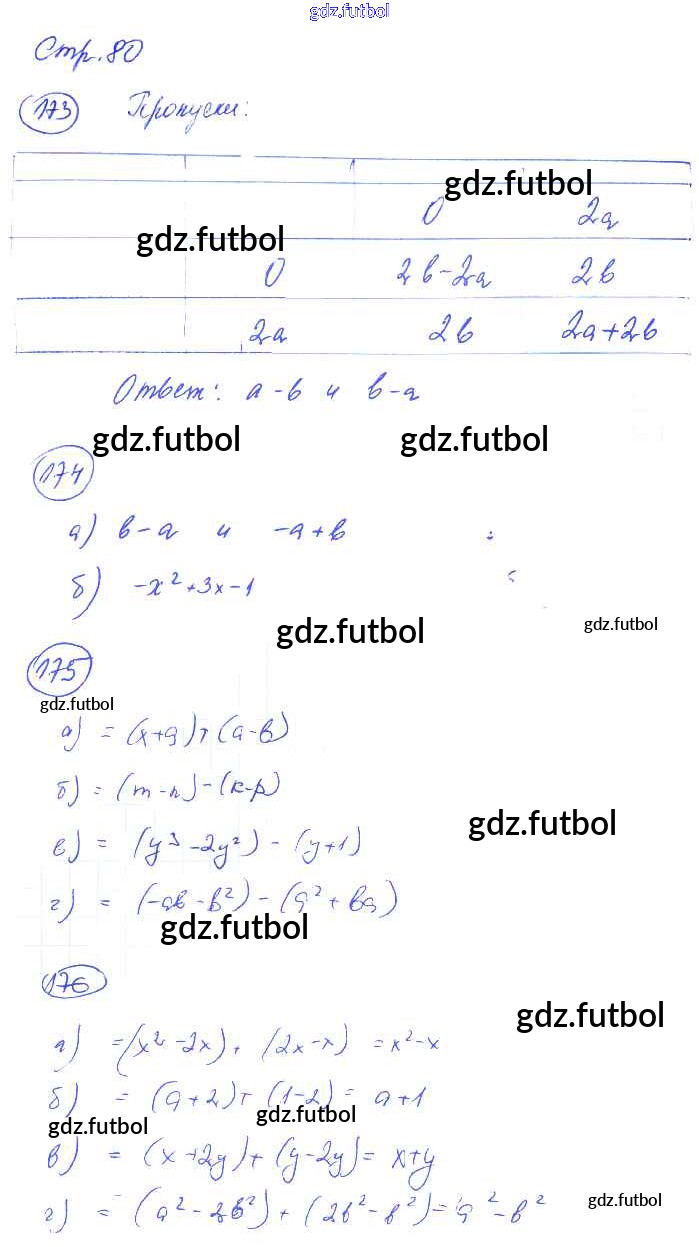 gdz.futbol
Стр. 80
173 Пропуски:
gdz.futbol
0 2a
gdz.futbol
0 2b-2a 2b
2a 2b 2a+2b
Ответ: a-b и b-a
gdz.futbol gdz.futbol
174
а) b-a и -a+b
б) -x²+3x-1
gdz.futbol gdz.futbol
175
gdz.futbol
а) = (x+a)+(a-b)
б) = (m-n)-(k-p)
gdz.futbol
в) = (y³-2y²)-(y+1)
г) = (-ab-b²)-(a²+ba)
gdz.futbol
176
gdz.futbol
а) =(x²-2x)+(2x-x) =x²-x
б) = (a+2)+(1-2)= a+1
gdz.futbol gdz.futbol
в) = (x+2y)+(y-2y)= x+y
г) = (a²-2b²)+(2b²-b²)=a²-b²
gdz.futbol